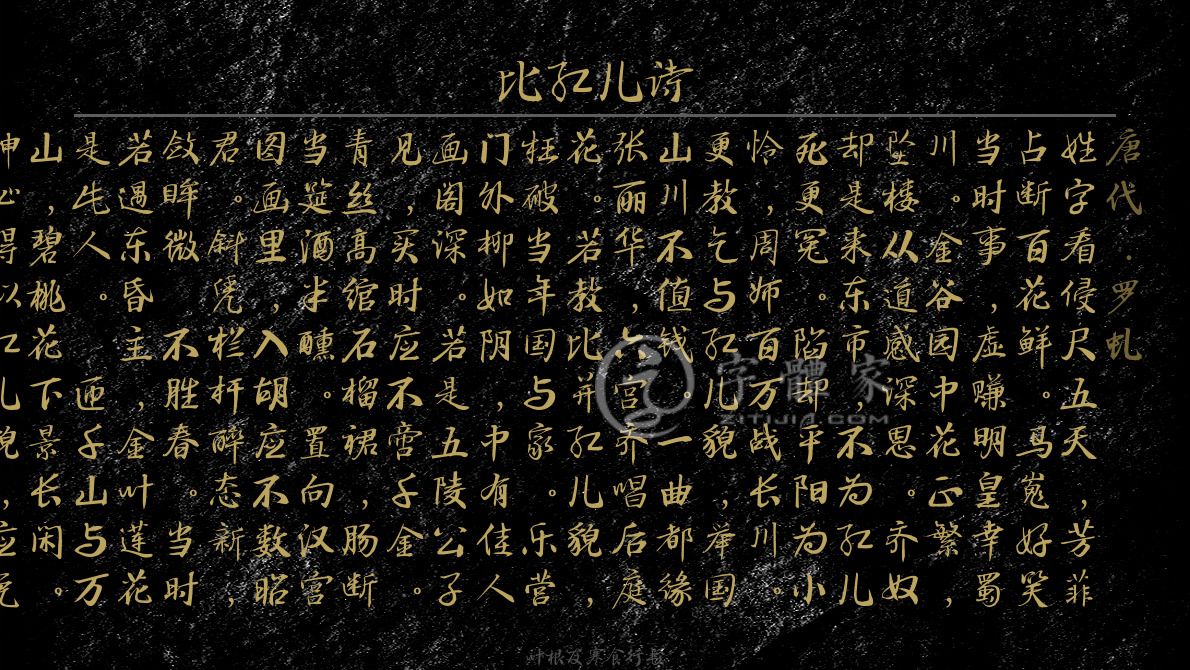 比红儿诗
唐代·罗虬
姓字看侵尺五天,芳菲
占断百花鲜。马嵬好笑
当时事,虚赚明皇幸蜀
川。金谷园中花正繁,
坠楼从道感深恩。齐奴
却是来东市,不为红儿
死更冤。陷却平阳为小
怜,周师百万战长川。
更教乞与红儿貌,举国
山川不值钱。一曲都缘
张丽华,六宫齐唱后庭
花。若教比并红儿貌,
枉破当年国与家。乐营
门外柳如阴,中有佳人
画阁深。若是五陵公子
见,买时应不啻千金。
青丝高绾石榴裙,肠断
当筵酒半醺。置向汉宫
图画里,入胡应不数昭
君。斜凭栏杆醉态新,
敛眸微不胜春。当时
若遇东昏主,金叶莲花
是牝人。匝千山与万
山,碧桃花下景长闲。
字體家
ZITIJIA.COM